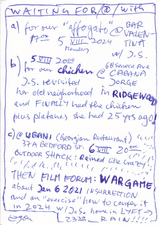 WAITING FOR @ / with
a) for our "affogato" @ BAR
VALEN
TINA
5 VIII 2024
Monday
W/ J.S.
b) 5 VIII 2024
for our chicken @ CABANA
JORGE
J.S. revisited
her old neighborhood in RIDGEWOOD
and FINALLY had the chicken
plus platanos she had 25 yrs ago!
c) @ UBANI (Georgian Restaurant)
37A BEDFORD ST. 6 VIII 2024
OUTDOOR SHACK: Rained like crazy!
THEN FILM FORUM: WAR GAME
about Jan 6 2021 INSURRECTION
and an "exercise" how to confer it
in 2024 W/ J.S. home in LYFT →
2332 RAIN!!!